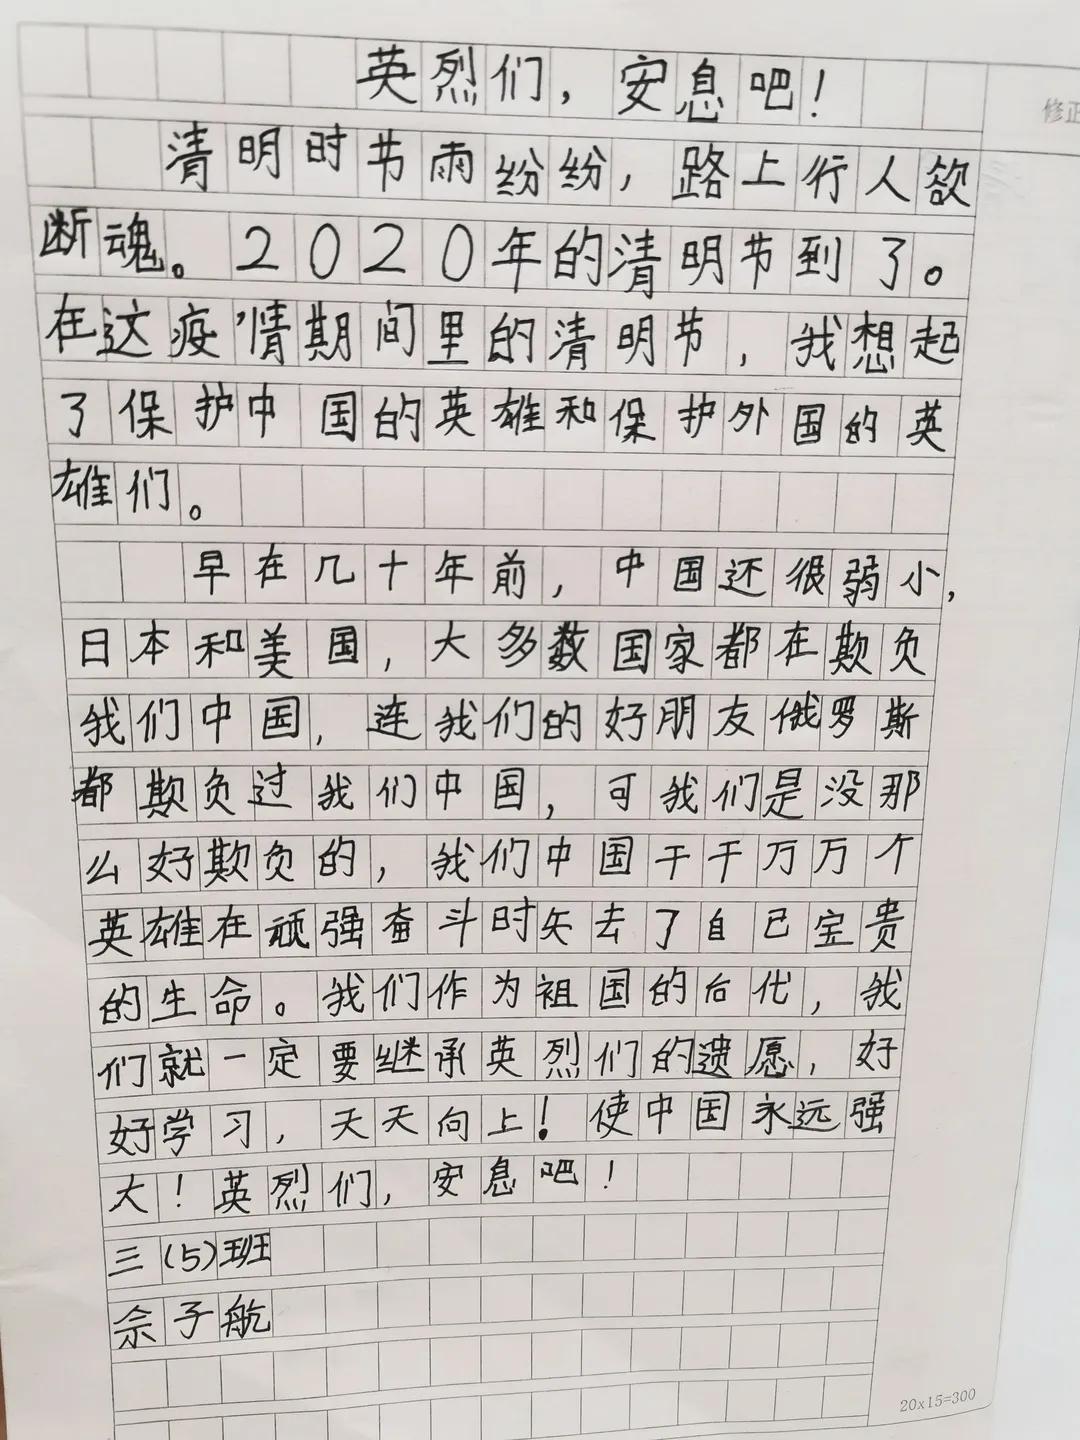 英烈们，安息吧！
修正
清明时节雨纷纷，路上行人欲
断魂。2020年的清明节到了。
在这疫情期间里的清明节，我想起
了保护中国的英雄和保护外国的英
雄们。
早在几十年前，中国还很弱小，
日本和美国，大多数国家都在欺负
我们中国，连我们的好朋友俄罗斯
都欺负过我们中国，可我们是没那
么好欺负的，我们中国千千万万个
英雄在顽强奋斗时矢去了自己宝贵
的生命。我们作为祖国的后代，我
们就一定要继承英烈们的遗愿，好
好学习，天天向上！使中国永远强
大！英烈们，安息吧！
三(5)班
佘子航
20x15=300